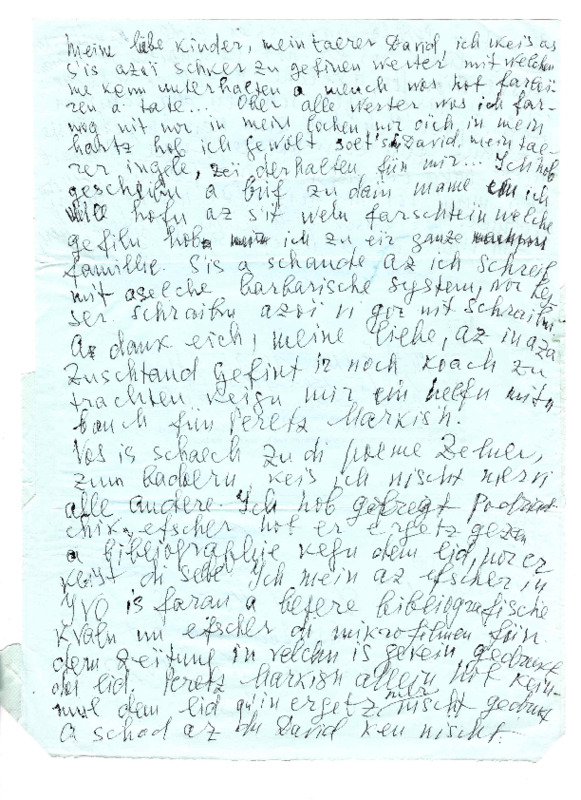 meine liebe Kinder, mein taerer David, ich weis as
S'is azoi schwer zu gefinen werter mit welchen
me kenn unterhalten a mench was hot farloi-
ren a tate... Ober alle werter was ich far-
mog nit nor in mein lochen, nor oich in mein
hartz hob ich gewolt David, mein tae-
rer ingele, zei derhalten fün mir... Ich hob
geschribn a brif zu dain mame un ich
will hofn az s'it wein farschtein welche
gefiln hob ich zu eir ganze
familie. S'is a schande az ich schreib
mit aselche barbarische system, nor bes-
ser schraibn azoi vi gor nit schraibn
A dank eich, meine liebe, az in aza
zuschtand gefint ir noch koach zu
trachten wegn mir un helfn mitn
buch fün Peretz Markisch.
Vos is schaech zu di poeme
zum weis ich nischt mer vi
alle andere. Ich hob gefregt
efscher hot er ergetz gezen
a bibliographije wegn dem lid, nor er
weist di selbe Ich mein az efscher in
YVO is faran a besere bibliografische
kvaln un efscher di mikrofilmen fün
dem zeitung in velchn is gewein gedrukt
dos lid. Peretz Markish allein hot kein-
mol dem lid in ergetz mer nischt gedrukt
A schod az du David ken nischt.